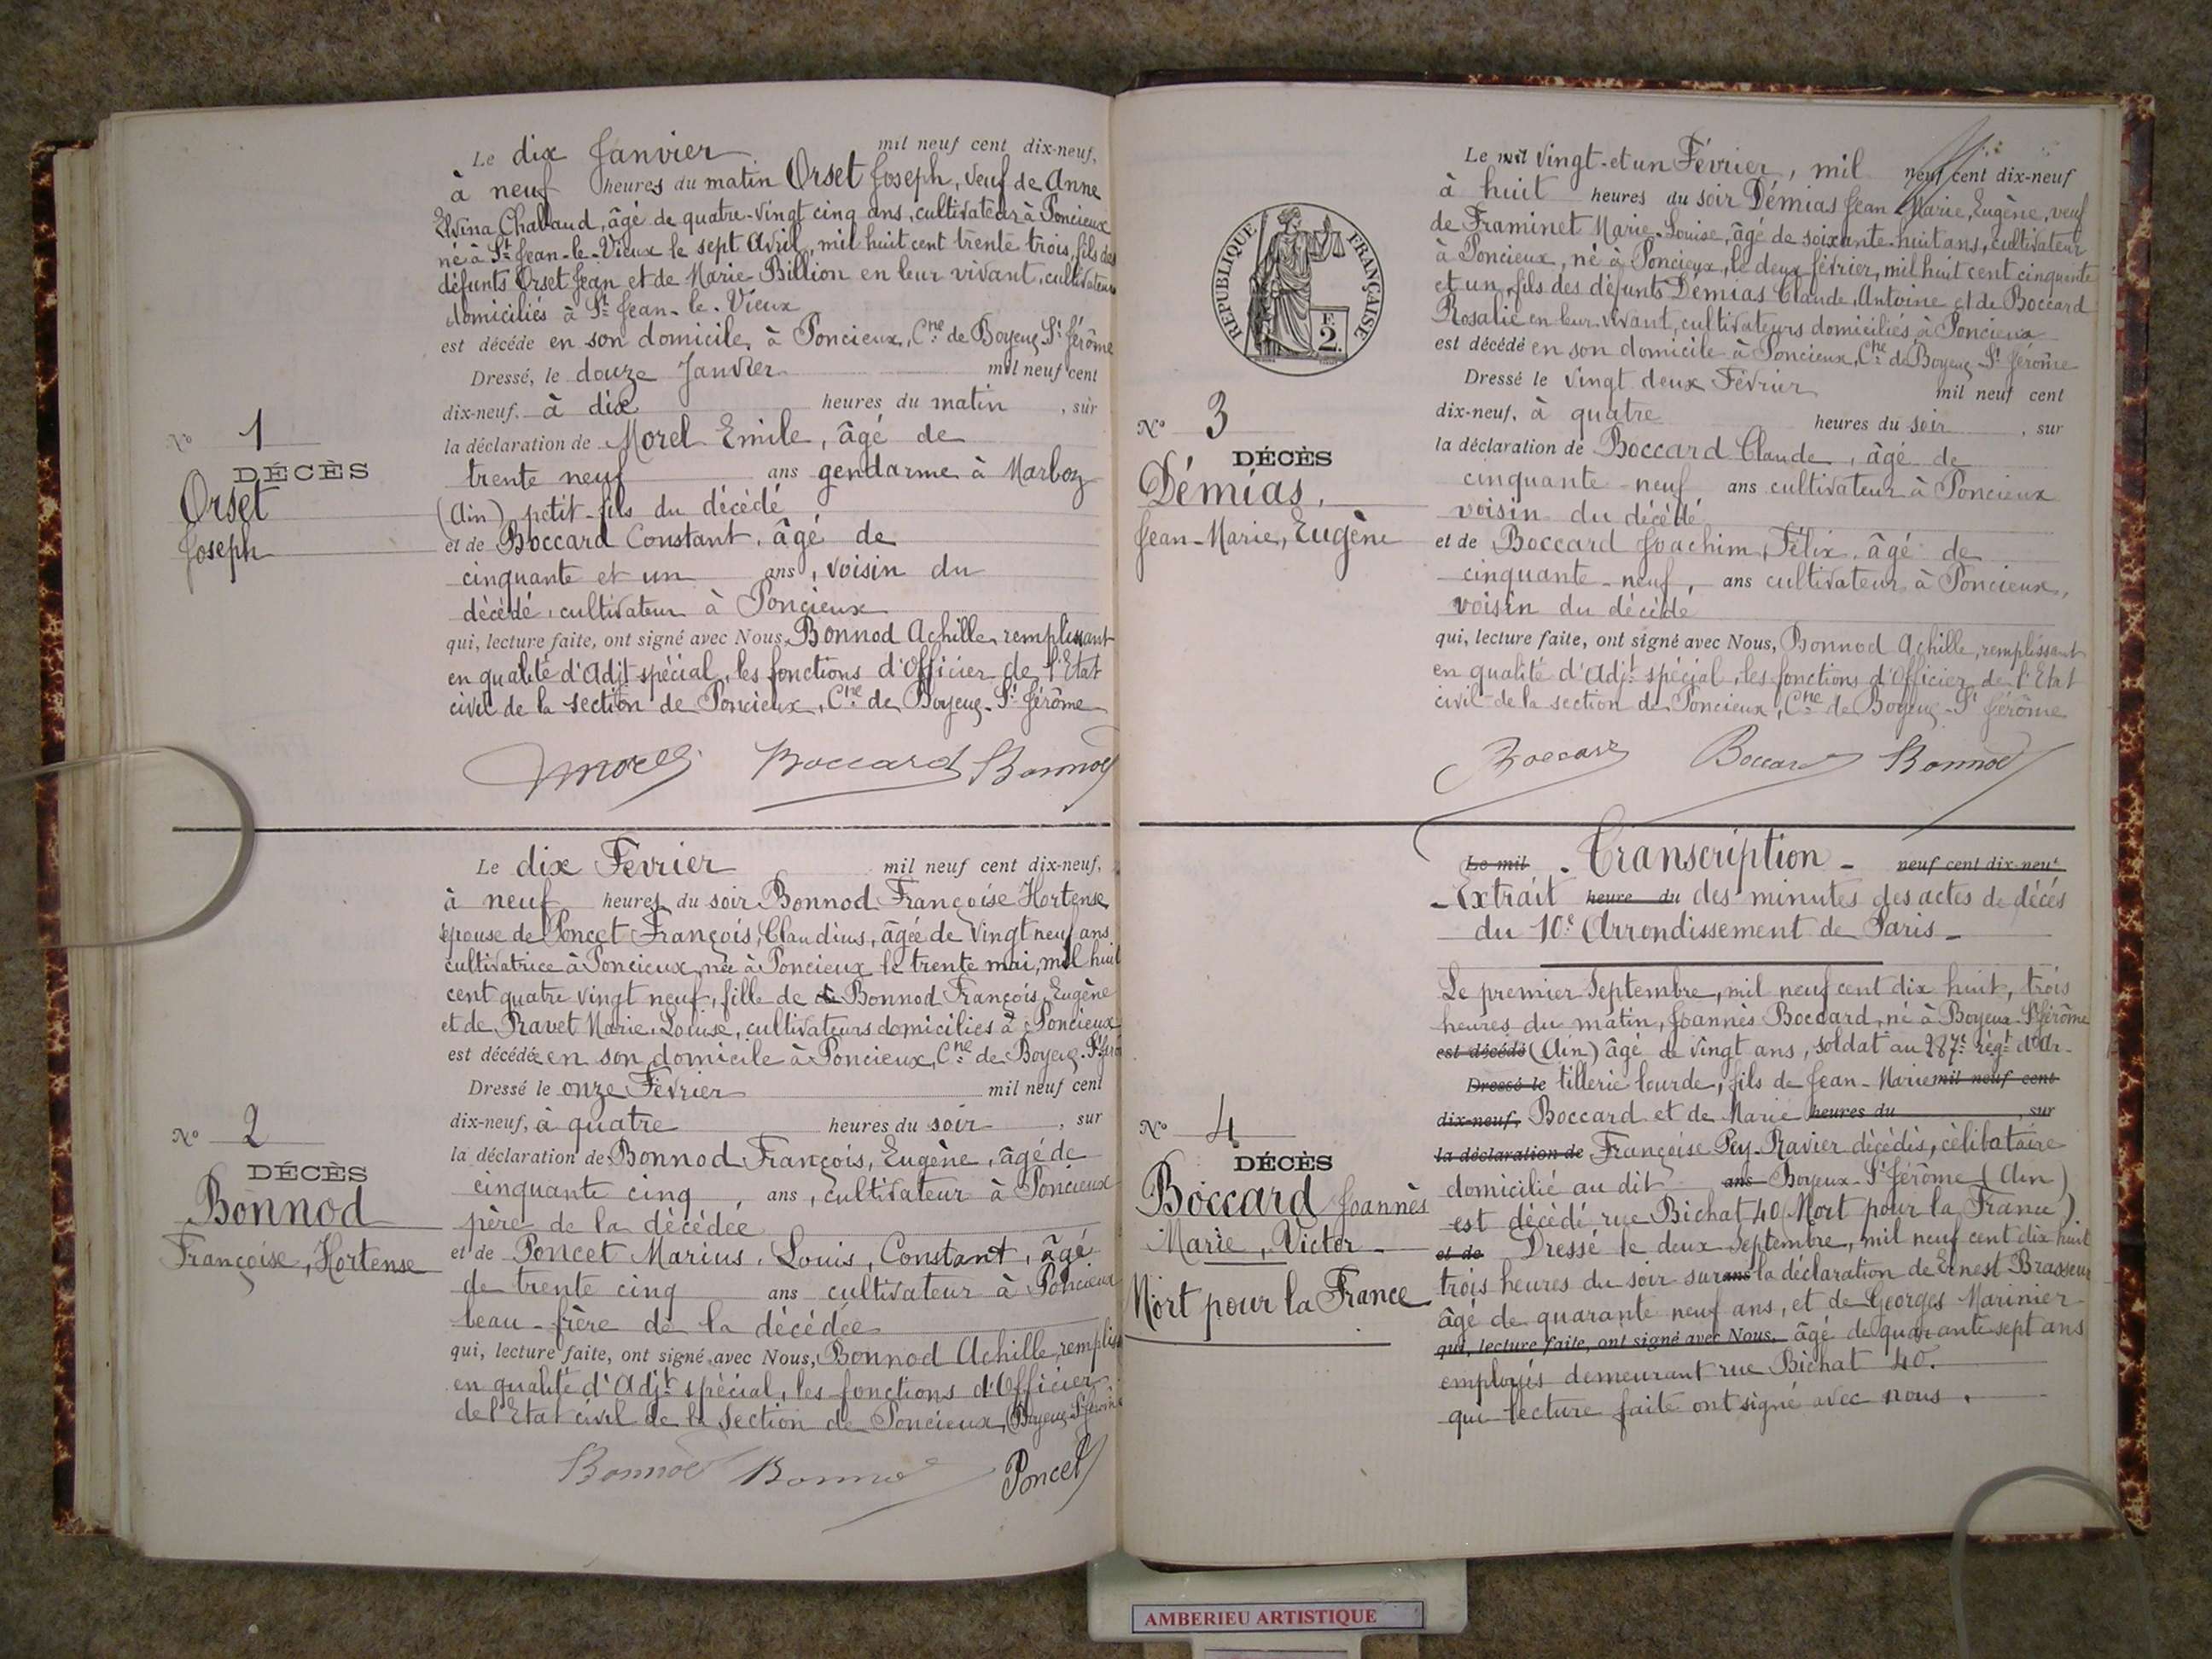 Le dix Janvier mil neuf cent dix-neuf,
à neuf heures du matin Orset Joseph, veuf de Anne
Elvina Chabaud, âgé de quatre-vingt cinq ans, cultivateur à Poncieux
né à St Jean-le-Vieux le sept Avril, mil huit cent trente trois, fils des
défunts Orset Jean et de Marie Billion en leur vivant, cultivateurs
domiciliés à St Jean-le-Vieux
est décédé en son domicile, à Poncieux, Cne de Boyeux-St Jérôme
Dressé, le douze Janvier mil neuf cent
dix-neuf. à dix heures du matin, sur
la déclaration de Morel Emile, âgé de
trente neuf ans gendarme à Marboz
(Ain) petit-fils du décédé
et de Boccard Constant, âgé de
cinquante et un ans, voisin du
décédé, cultivateur à Poncieux
qui, lecture faite, ont signé avec Nous, Bonnod Achille, remplissant
en qualité d'Adjt spécial, les fonctions d'Officier de l'Etat
civil de la section de Poncieux, Cne de Boyeux-St Jérôme
Morel Boccard Bonnod
N° 1
DÉCÈS
Orset
Joseph
Le dix Fevrier mil neuf cent dix-neuf,
à neuf heures du soir Bonnod Françoise Hortense
épouse de Poncet François, Claudius, âgée de vingt neuf ans
cultivatrice à Poncieux, née à Poncieux le trente mai, mil huit
cent quatre vingt neuf, fille de de Bonnod François, Eugène
et de Ravet Marie, Louise, cultivateurs domiciliés à Poncieux
est décédée en son domicile à Poncieux, Cne de Boyeux-St Jérô
Dressé le onze Février mil neuf cent
dix-neuf, à quatre heures du soir, sur
la déclaration de Bonnod François, Eugène, âgé de
cinquante cinq, ans, cultivateur à Poncieux
père de la décédée
et de Poncet Marius, Louis, Constant, âgé
de trente cinq ans cultivateur à Poncieux
beau-frère de la décédée
qui, lecture faite, ont signé avec Nous, Bonnod Achille rempliss
en qualité d'Adjt spécial, les fonctions d'Officier
de l'Etat civil de la section de Poncieux, (Boyeux-St Jérôme
Bonnod Bonnod Poncet
N° 2
DÉCÈS
Bonnod
Françoise, Hortense
Le mil vingt-et un Février, mil neuf cent dix-neuf
à huit heures du soir Démias Jean Marie, Eugène, veuf
de Framinet Marie-Louise, âgé de soixante-huit ans, cultivateur
à Poncieux, né à Poncieux, le deux février, mil huit cent cinquante
et un, fils des défunts Démias Claude, Antoine et de Boccard
Rosalie en leur vivant, cultivateurs domiciliés, à Poncieux
est décédé en son domicile à Poncieux, Cne de Boyeux-St Jérôme
Dressé le vingt deux Février mil neuf cent
dix-neuf, à quatre heures du soir, sur
la déclaration de Boccard Claude, âgé de
cinquante-neuf ans cultivateur à Poncieux
voisin du décédé
et de Boccard Joachim, Félix, âgé de
cinquante-neuf, ans cultivateur à Poncieux,
voisin du décédé
qui, lecture faite, ont signé avec Nous, Bonnod Achille, remplissant
en qualité d'Adjt spécial, les fonctions d'Officier de l'Etat
civil de la section de Poncieux, Cne de Boyeux-St Jérôme
Boccard Boccard Bonnod
RÉPUBLIQUE FRANÇAISE
F.
2.
N° 3
DÉCÈS
Démias,
Jean-Marie, Eugène
Le mil - Transcription - neuf cent dix-neuf
- Extrait heure du des minutes des actes de décés
du 10e Arrondissement de Paris -
Le premier Septembre, mil neuf cent dix huit, trois
heures du matin, Joannès Boccard, né à Boyeux-St Jérôme
est décédé (Ain) âgé de vingt ans, soldat au 287e régt d'Ar-
Dressé le tillerie lourde, fils de Jean-Marie mil neuf cent
dix-neuf, Boccard et de Marie heures du , sur
la déclaration de Françoise Pey-Ravier décédés, célibataire
domicilié au dit ans Boyeux-St Jérôme (Ain)
est décédé rue Bichat 40 (Mort pour la France)
et de Dressé le deux Septembre, mil neuf cent dix huit
trois heures du soir sur ans la déclaration de Ernest Brasseur
âgé de quarante neuf ans, et de Georges Marinier
qui, lecture faite, ont signé avec Nous, âgé de quarante sept ans
employés demeurant rue Bichat 40.
qui lecture faite ont signé avec nous.
N° 4
DÉCÈS
Boccard Joannès
Marie, Victor
Mort pour la France
AMBERIEU ARTISTIQUE